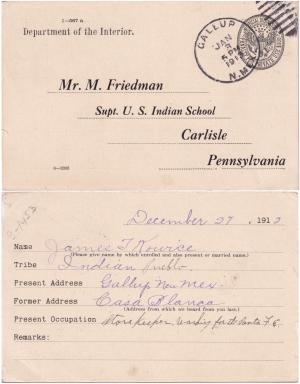 1—967 a
Department of the Interior.
GALLUP
JAN
5 PM
191
N.M.
Mr. M. Friedman
Supt. U. S. Indian School
Carlisle
Pennsylvania
6—2292
December 27, 1912
Name James T Kowice
(Please give name by which enrolled and also present or married name.)
Tribe Indian Pueblo
Present Address Gallup New Mex.
Former Address Casa Blanca
(Address from which we heard from you last.)
Present Occupation Storekeeper, working for the Santa F. C.
Remarks: